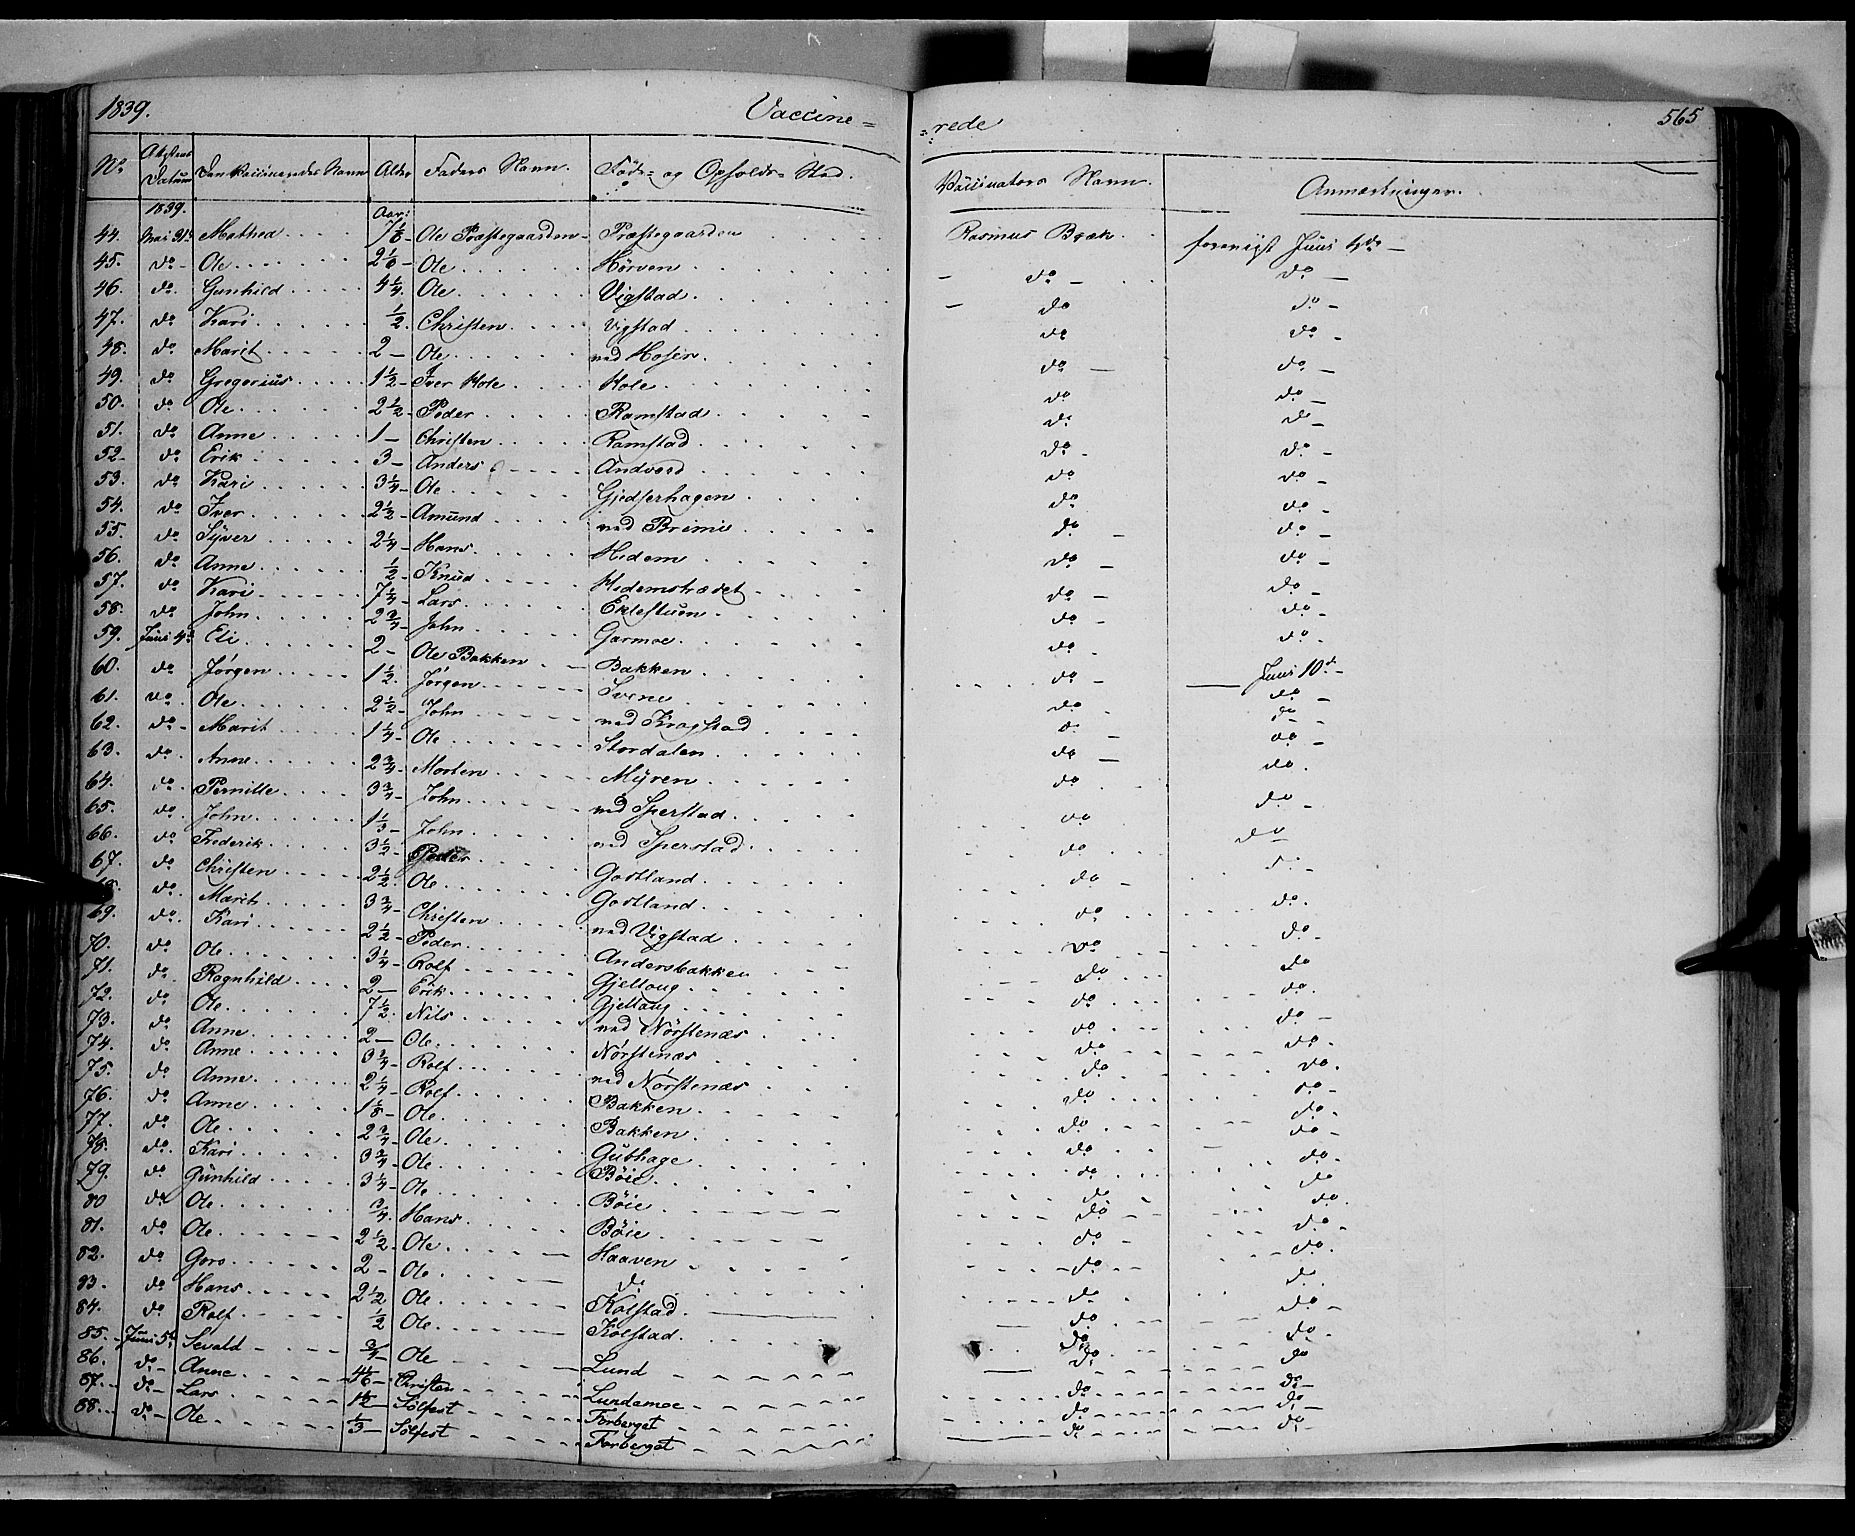 1839. Vaccine= =rede 565
No Attestens Datum Den Vaccineredes Navn Alder Faders Navn. Føde- og Opholds-Sted. Vaccinators Navn. Anmærkninger.
1839. Aar:
44. Mai 31te Mathea 7 1/8 - Ole Præstegaarden - Præstegaarden Rasmus Bræk foreviist Juni 4de -
45. do - Ole 2 1/8 - Ole Hørven - do - do -
46. do Gunhild 4 1/4. Ole Vigstad - do do -
47. do Kari 1/2. Christen Vigstad do do -
48. do Marit 2 - Ole ved Mosen do - do -
49. do Gregorius 1 1/2 - Iver Hole Hole do do -
50. do Ole 2 1/2 - Peder Ramstad do do -
51. do Anne 1 - Christen Ramstad do - do -
52 - do Erik 3 - Anders Andvord do do -
53. do Kari 3 1/4 - Ole Gjedserhagen do do -
54. do Iver 2 1/2 - Amund ved Brimi do - do -
55. do Syver 2 1/4 - Hans Hedem do - do
56. do Anne 1/2 - Knud Hedemstrædet do - do -
57. do Kari 7 1/4 - Lars Eklestuen do do -
58. do John 2 3/4 - John Garmoe do - do -
59. Juni 4de Eli 2 - Ole Bakken Bakken do - Juni 10de -
60. do Jørgen 1 1/2. Jørgen Svene do - do -
61. do Ole 2 1/2 - John ved Kragstad do do -
62. do - Marit 1 1/4 - Ole Stordalen do - do -
63. do Anne 2 3/4 - Morten Myren do do.
64. do Pernille 3 3/4 - John ved Sperstad do do -
65. do John 1 1/3 - John ved Sperstad do do -
66. do Frederik 3 1/2 - Peder Gastland do - do -
67. do Christen 2 1/2. Ole Gastland do do.
68. do Marit 3 3/4 - Christen ved Vigstad do do -
69. do Kari 2 1/2 - Peder Andersbakken do do
70. do Ole 3 1/4 - Rolf Gjeltoug do do.
71. do Ragnhild 2 - Erik Gjeltoug do do -
72. do Ole 7 1/2. Nils ved Nørstenæs do do.
73. do Anne 2 - Ole Nørstenæs do do.
74. do Anne 3 3/4 - Rolf ved Nørstenæs do do -
75. do Anne 2 1/4 - Rolf Bakken do do.
76. do Anne 1 1/8 - Ole Bakken do do -
77. do Ole 2 3/4 - Ole Gubhage do do.
78. do Kari 3 3/4 - Ole Bøie do do
79. do Gunhild 3 1/4 - Ole Bøie do do.
80 do Ole 3/4. Hans Bøie do do -
81. do Ole 2 1/2. Ole Haaven do do.
82. do Goro 2 - Ole do do do
83. do Hans 2 1/2. Ole Kolstad do do -
84. do Rolf 1/2 Ole Kolstad do do.
85. - Juni 5te Sevald 3/4 - Ole Lund do do
86. do - Anne 4 1/6 - Christen Lundamoe do do -
87. do - Lars 1 1/2 - Sølfest Forberget do do -
88. do - Ole 1/3 - Sølfest Forberget do do -